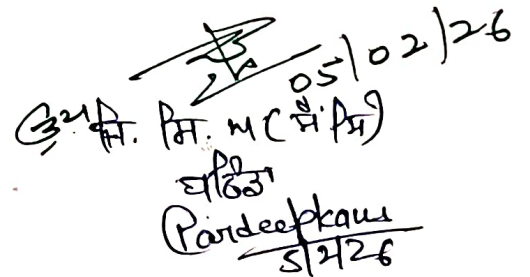 05/02/26
ਉਪ ਜਿ. ਸਿ. ਅ (ਸੈ. ਸਿ)
ਬਠਿੰਡਾ
Pardeepkaur
5/2/26